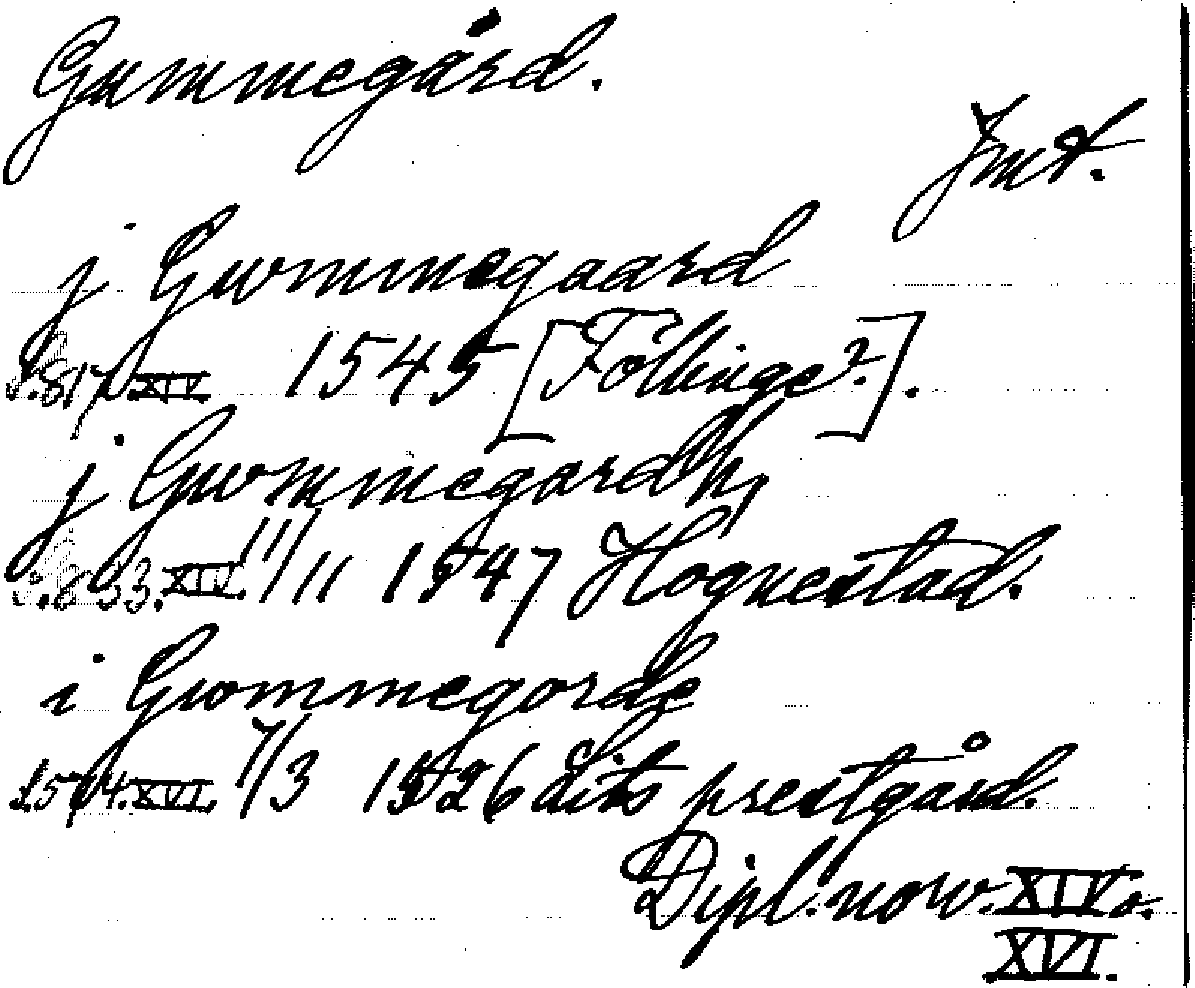 Gummegård.
Jmt.
j Gwmmegaard
s. 817. XIV 1545 [Föllinge?].
j Gwmmegardh,
s. 833. XIV. 11/11 1547 Hognestad.
i Gwmmegorde
s. 574. XVI. 7/3 1526 Lits prestgård.
Dipl. norv. XIV o.
XVI.